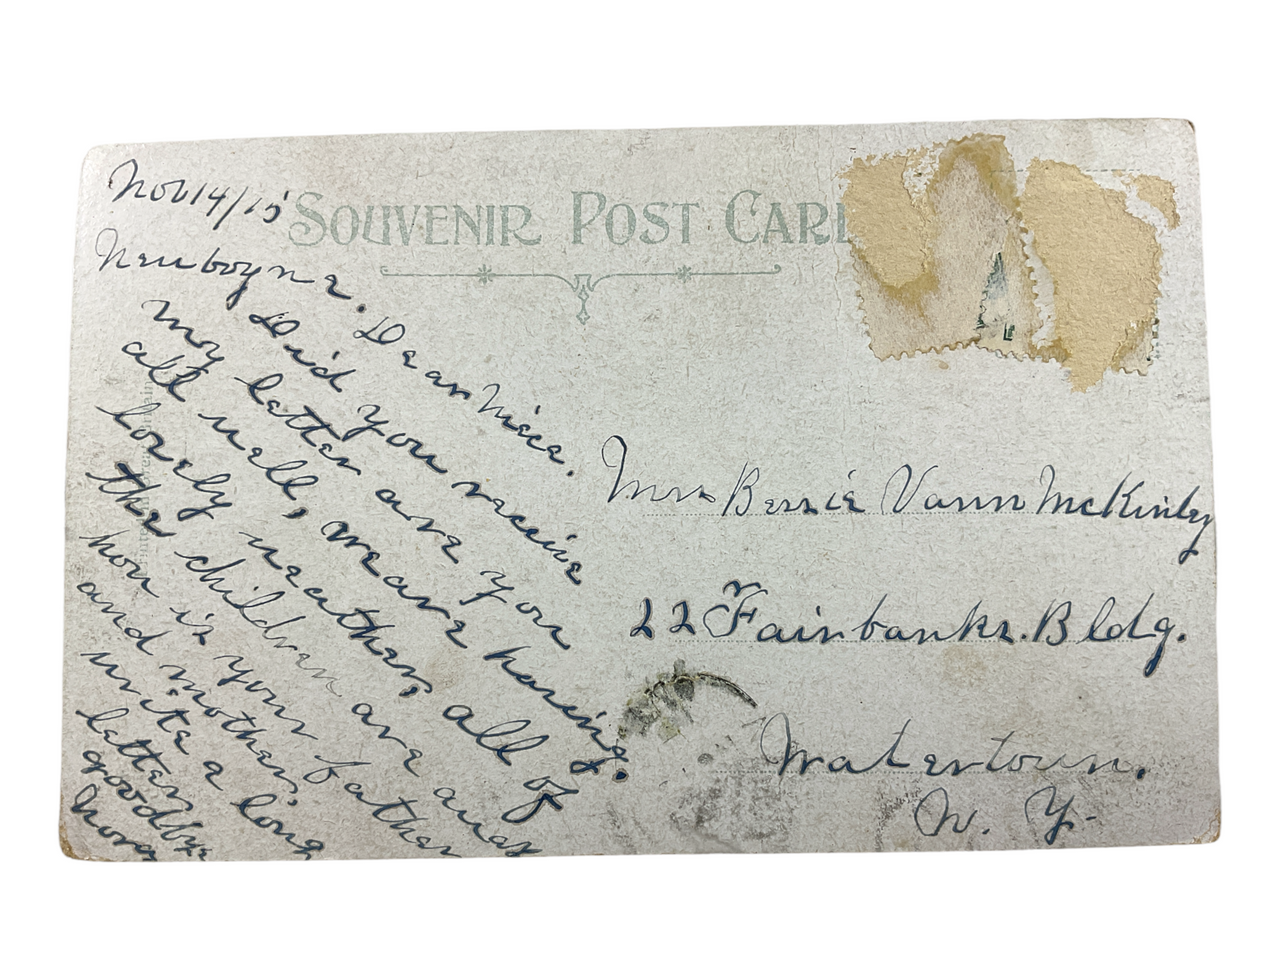 Nov 14/15
SOUVENIR POST CARD
Newboyne. Dear Niece.
Did you receive
my letter are you
all well, we are having.
lovely weather, all of
the children are away
how is your father
and mother,
write a long
letter
goodbye
Nora
Mrs Bessie Vann McKinley
22 Fairbanks. Bldg.
Watertown.
N. Y.